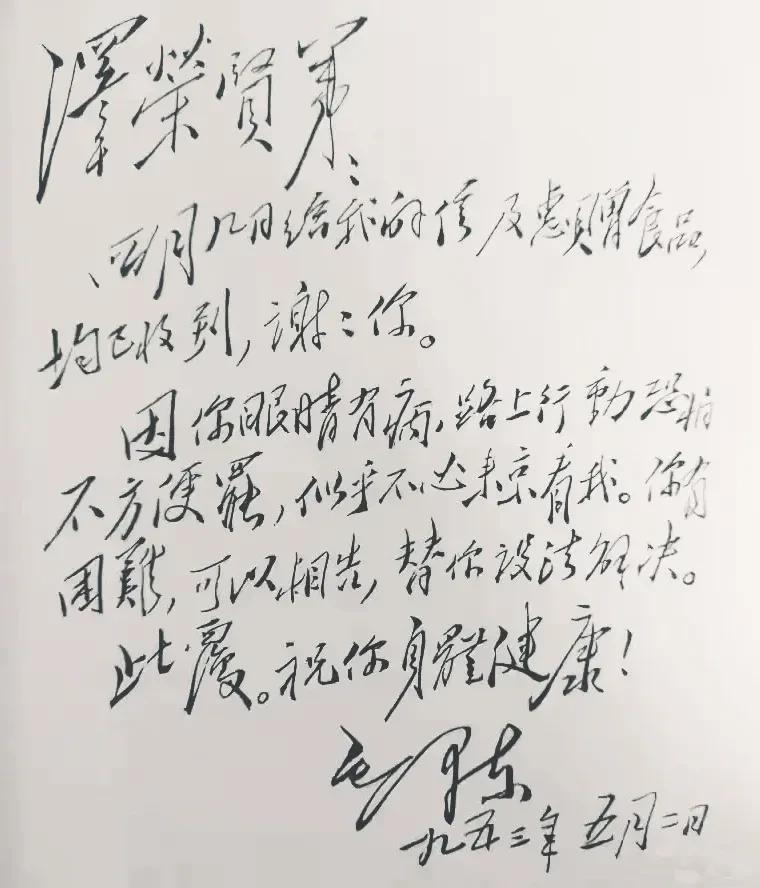 澤榮賢弟：
四月八日給我的信及惠贈食品，
均已收到，謝〻你。
因你眼睛有病，路上行動恐怕
不方便罷，似乎不必来京看我。你有
困難，可以相告，替你設法解决。
此覆。祝你身體健康！
毛澤东
一九五三年五月二日